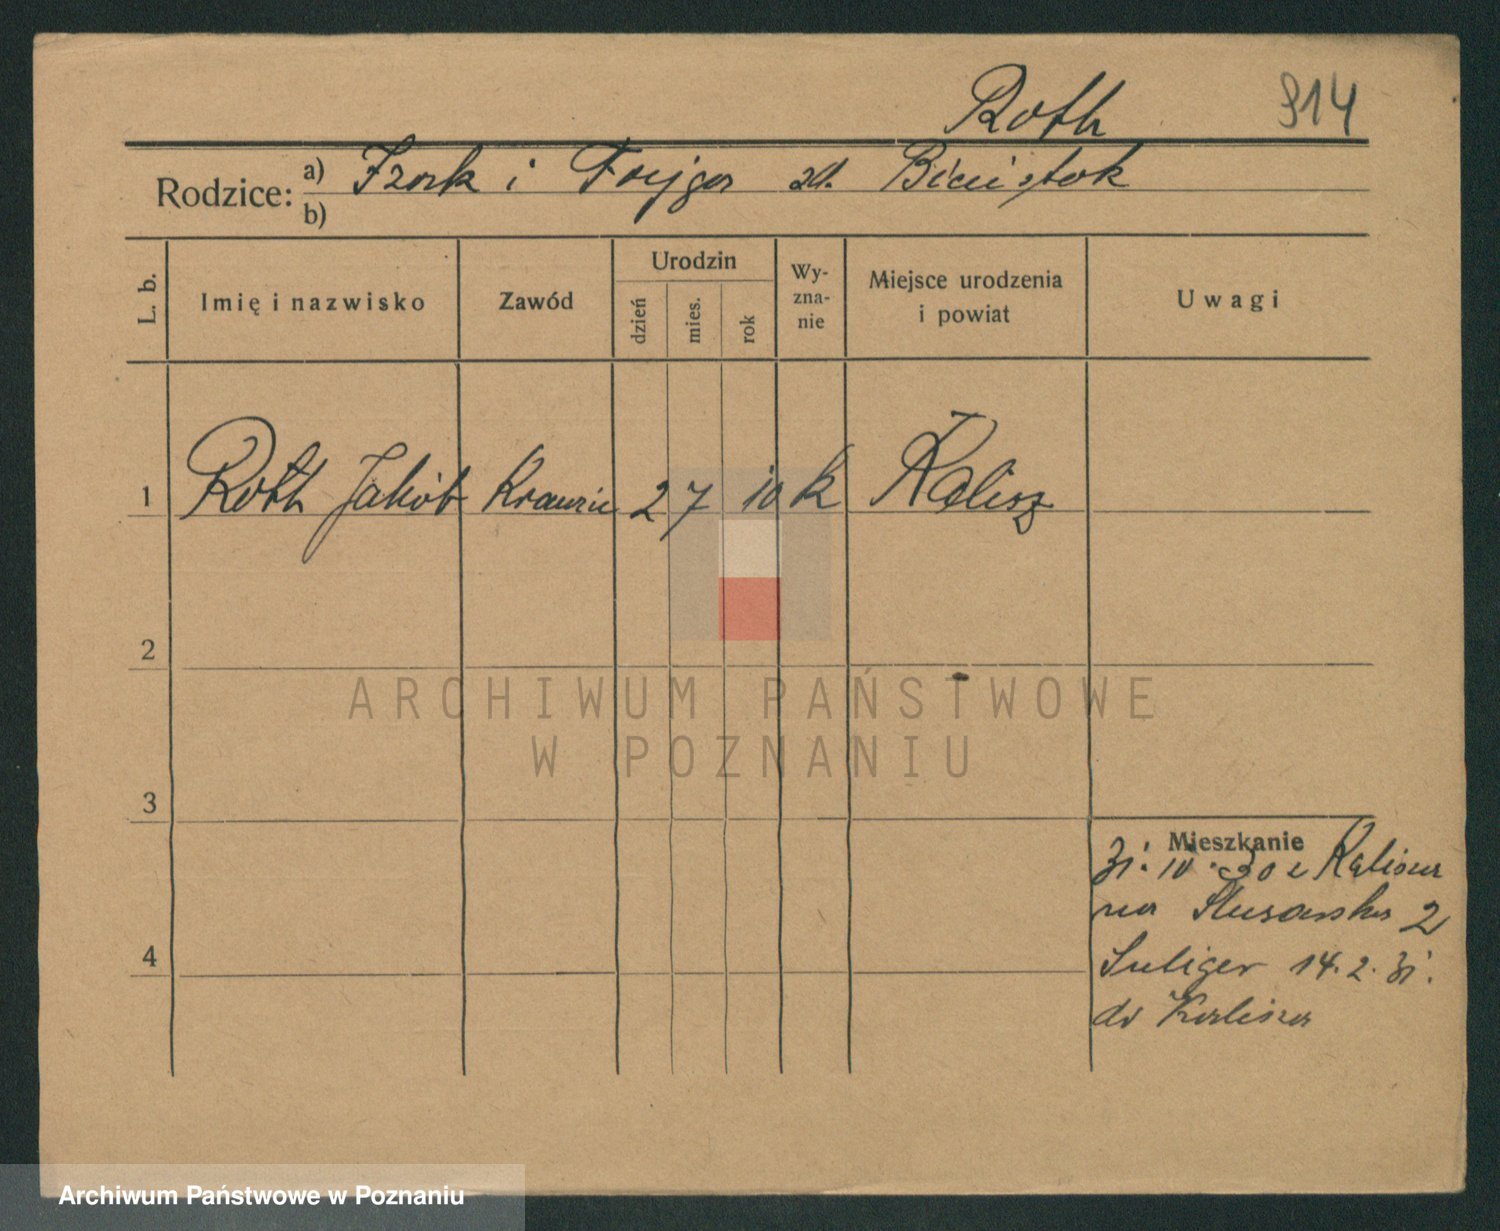 Roth 914
Rodzice: a) Izak i Frejga zd. Białystok
b)
L. b.
Imię i nazwisko
Zawód
Urodzin
dzień
mies.
rok
Wy-
zna-
nie
Miejsce urodzenia
i powiat
Uwagi
1 Roth Jakób Krawiec 2 7 10 Kalisz
2
3
4
Mieszkanie
10. 30 z Kalisza
2
14. 2. 31.
do Kalisza
ARCHIWUM PAŃSTWOWE
W POZNANIU
Archiwum Państwowe w Poznaniu